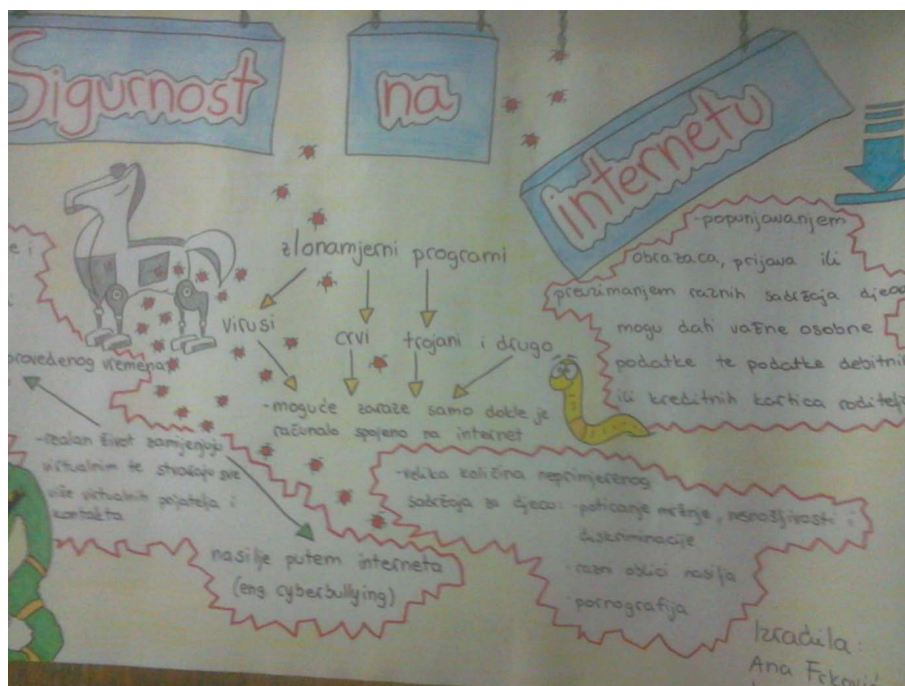 Sigurnost na internetu
zlonamjerni programi
virusi
crvi
trojani i drugo
-moguće zaraze samo dokle je
računalo spojeno na internet
-popunjavanjem
obrazaca, prijava ili
preuzimanjem raznih sadržaja djeca
mogu dati važne osobne
podatke te podatke debitnih
ili kreditnih kartica roditelja
e i
provedenog vremena
-realan život zamjenjuju
virtualnim te stvaraju sve
više virtualnih prijatelja i
kontakta
nasilje putem interneta
(eng. cyberbullying)
-velika količina neprimjerenog
sadržaja za djecu: -poticanje mržnje, nesnošljivosti i
diskriminacije
-razni oblici nasilja
-pornografija
Izradila:
Ana